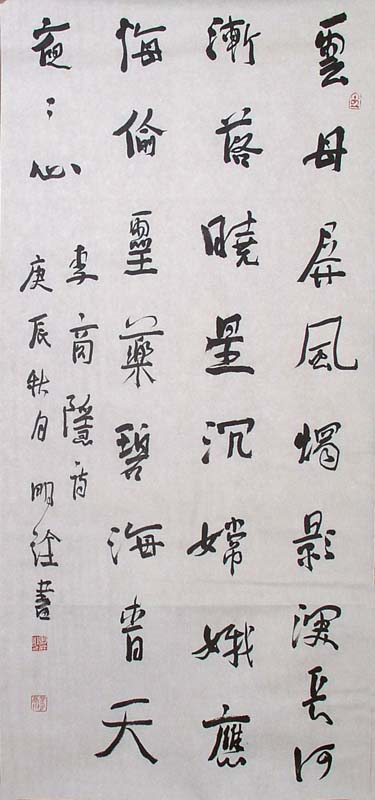 雲母屏風燭影深長河
漸落曉星沉嫦娥應
悔偷靈藥碧海青天
夜夜心
李商隱詩
庚辰秋月明詮書